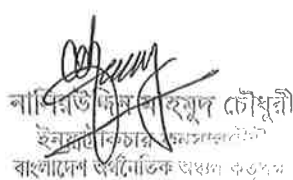 নাসিরউদ্দিন মাহমুদ চৌধুরী
ইনফ্রাস্ট্রাকচার
বাংলাদেশ অর্থনৈতিক অঞ্চল কর্তৃপক্ষ